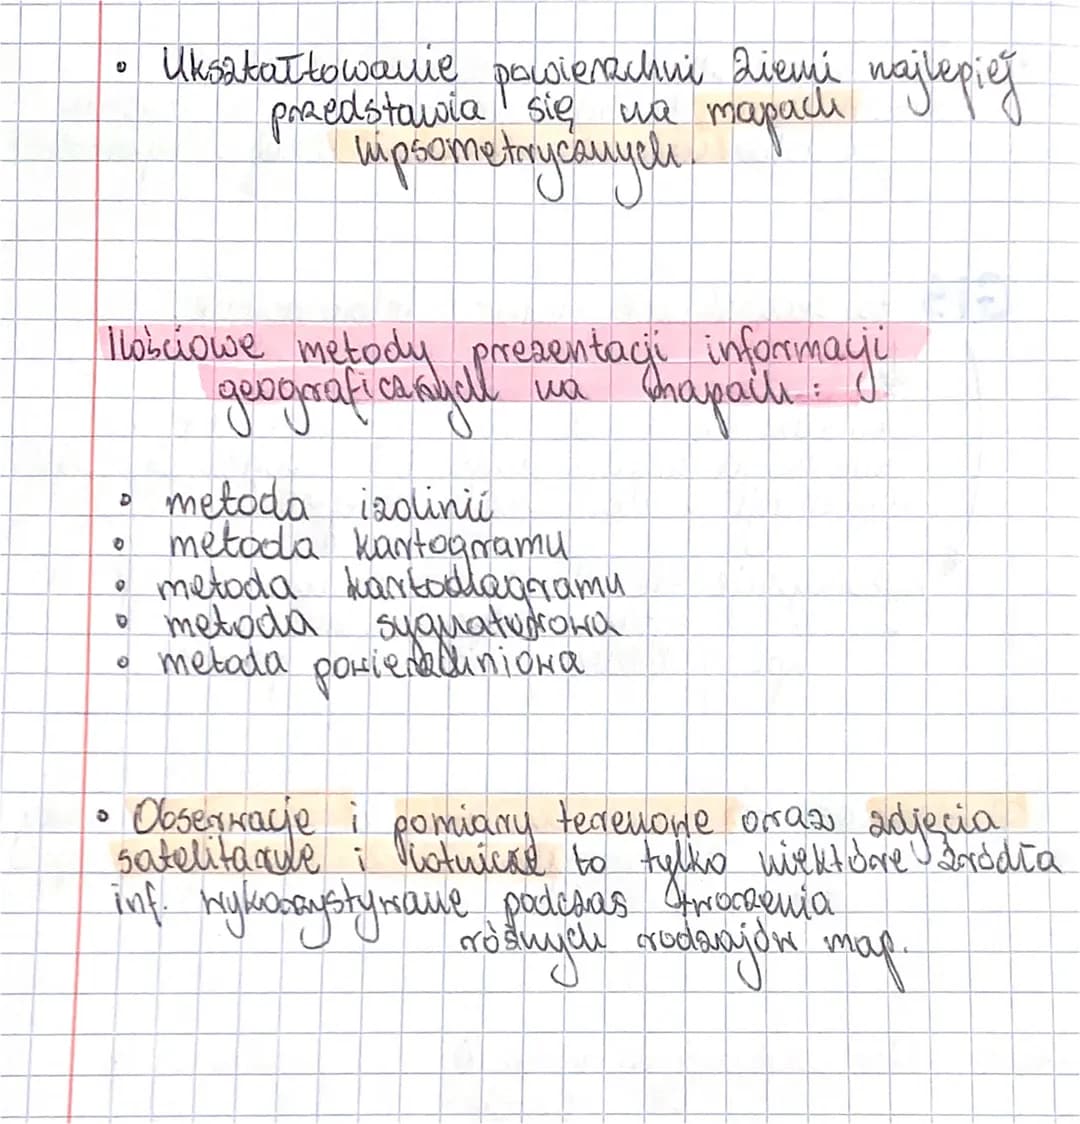 • Ukształtowanie powierzchni Ziemi najlepiej
przedstawia się na mapach
hipsometrycznych.
Ilościowe metody prezentacji informacji
geograficznych na mapach:
• metoda izolinii
• metoda kartogramu
• metoda kartodiagramu
• metoda sygnaturowa
• metoda powierzchniowa
• Obserwacje i pomiary terenowe oraz zdjęcia
satelitarne i lotnicze to tylko niektóre źródła
inf. wykorzystywane podczas tworzenia
różnych rodzajów map.